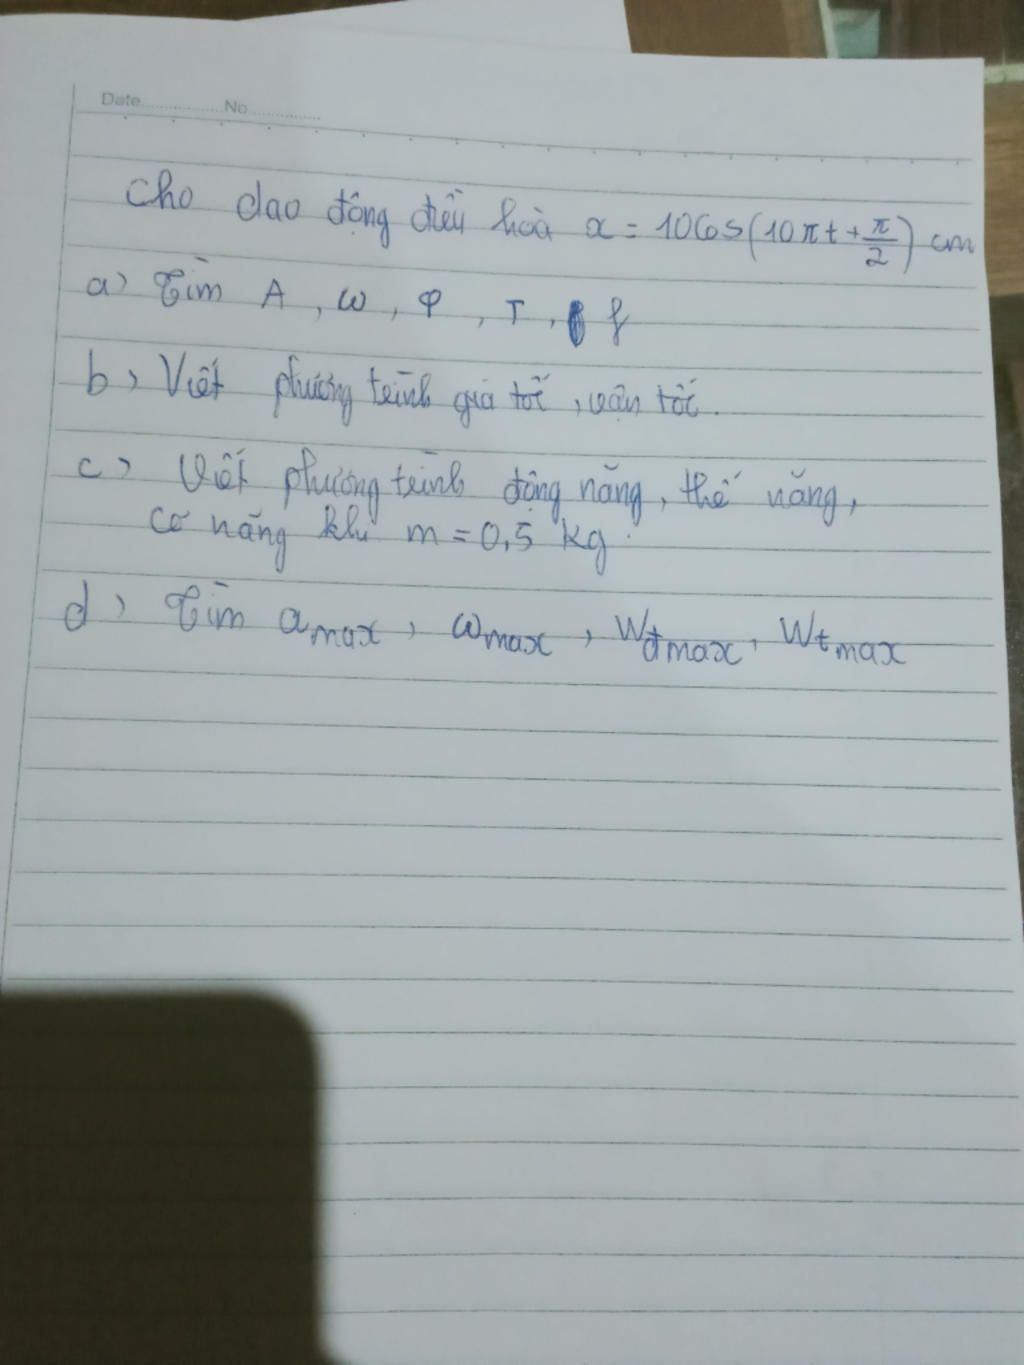 Date.................No................
Cho dao động điều hoà x = 10cos(10πt + π/2) cm
a) Tìm A, ω, φ, T, f
b) Viết phương trình gia tốc, vận tốc.
c) Viết phương trình động năng, thế năng,
cơ năng khi m = 0,5 kg.
d) Tìm amax, ωmax, Wđmax, Wtmax